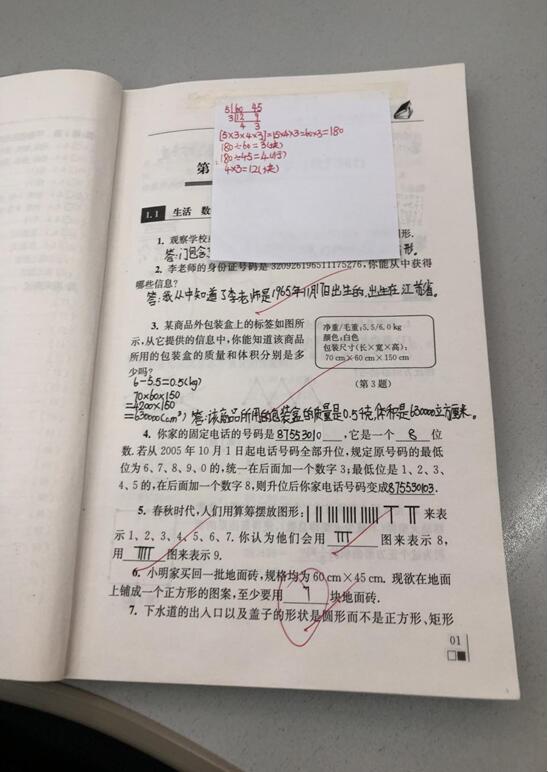 5 60 45
3 12 9
4 3
[5×3×4×3]=15×4×3=60×3=180
180÷60=3(块)
180÷45=4(块)
4×3=12(块)
第
1.1 生活 数
1. 观察学校 形.
答:门包含 形。
2. 李老师的身份证号码是 320926196511175276,你能从中获得
哪些信息?
答:我从中知道了李老师是1965年11月17日出生的,出生在江苏省。
3. 某商品外包装盒上的标签如图所
示,从它提供的信息中,你能知道该商品
所用的包装盒的质量和体积分别是多
少吗?
净重/毛重:5.5/6.0 kg
颜色:白色
包装尺寸(长×宽×高):
70 cm×60 cm×150 cm
(第 3 题)
6-5.5=0.5(kg)
70×60×150
=4200×150
=630000(cm³) 答:该商品所用的包装盒的质量是0.5千克,体积是630000立方厘米。
4. 你家的固定电话的号码是 87553010 ,它是一个 8 位
数. 若从 2005 年 10 月 1 日起电话号码全部升位,规定原号码的最低
位为 6、7、8、9、0 的,统一在后面加一个数字 3;最低位是 1、2、3、
4、5 的,在后面加一个数字 8,则升位后你家电话号码变成875530103.
5. 春秋时代,人们用算筹摆放图形: 来表
示 1、2、3、4、5、6、7. 你认为他们会用 图来表示 8,
用 图来表示 9.
6. 小明家买回一批地面砖,规格均为 60 cm×45 cm. 现欲在地面
上铺成一个正方形的图案,至少要用 块地面砖.
7. 下水道的出入口以及盖子的形状是圆形而不是正方形、矩形
01